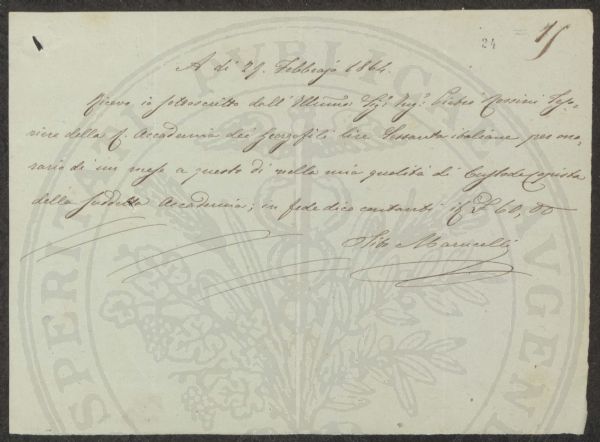 24
15
A dì 29. Febbrajo 1864.
Ricevo io sottoscritto dall' Illmo: Sig: Ingr: Pietro Rossini Teso-
riere della R. Accademia dei Georgofili lire Sessanta italiane per ono-
rario di un mese a questo dì nella mia qualità di Custode Copista
della suddetta Accademia; in fede dico contanti £ 60,00
Tito Marucelli
SPERITATI PUBLICA AUGENDA